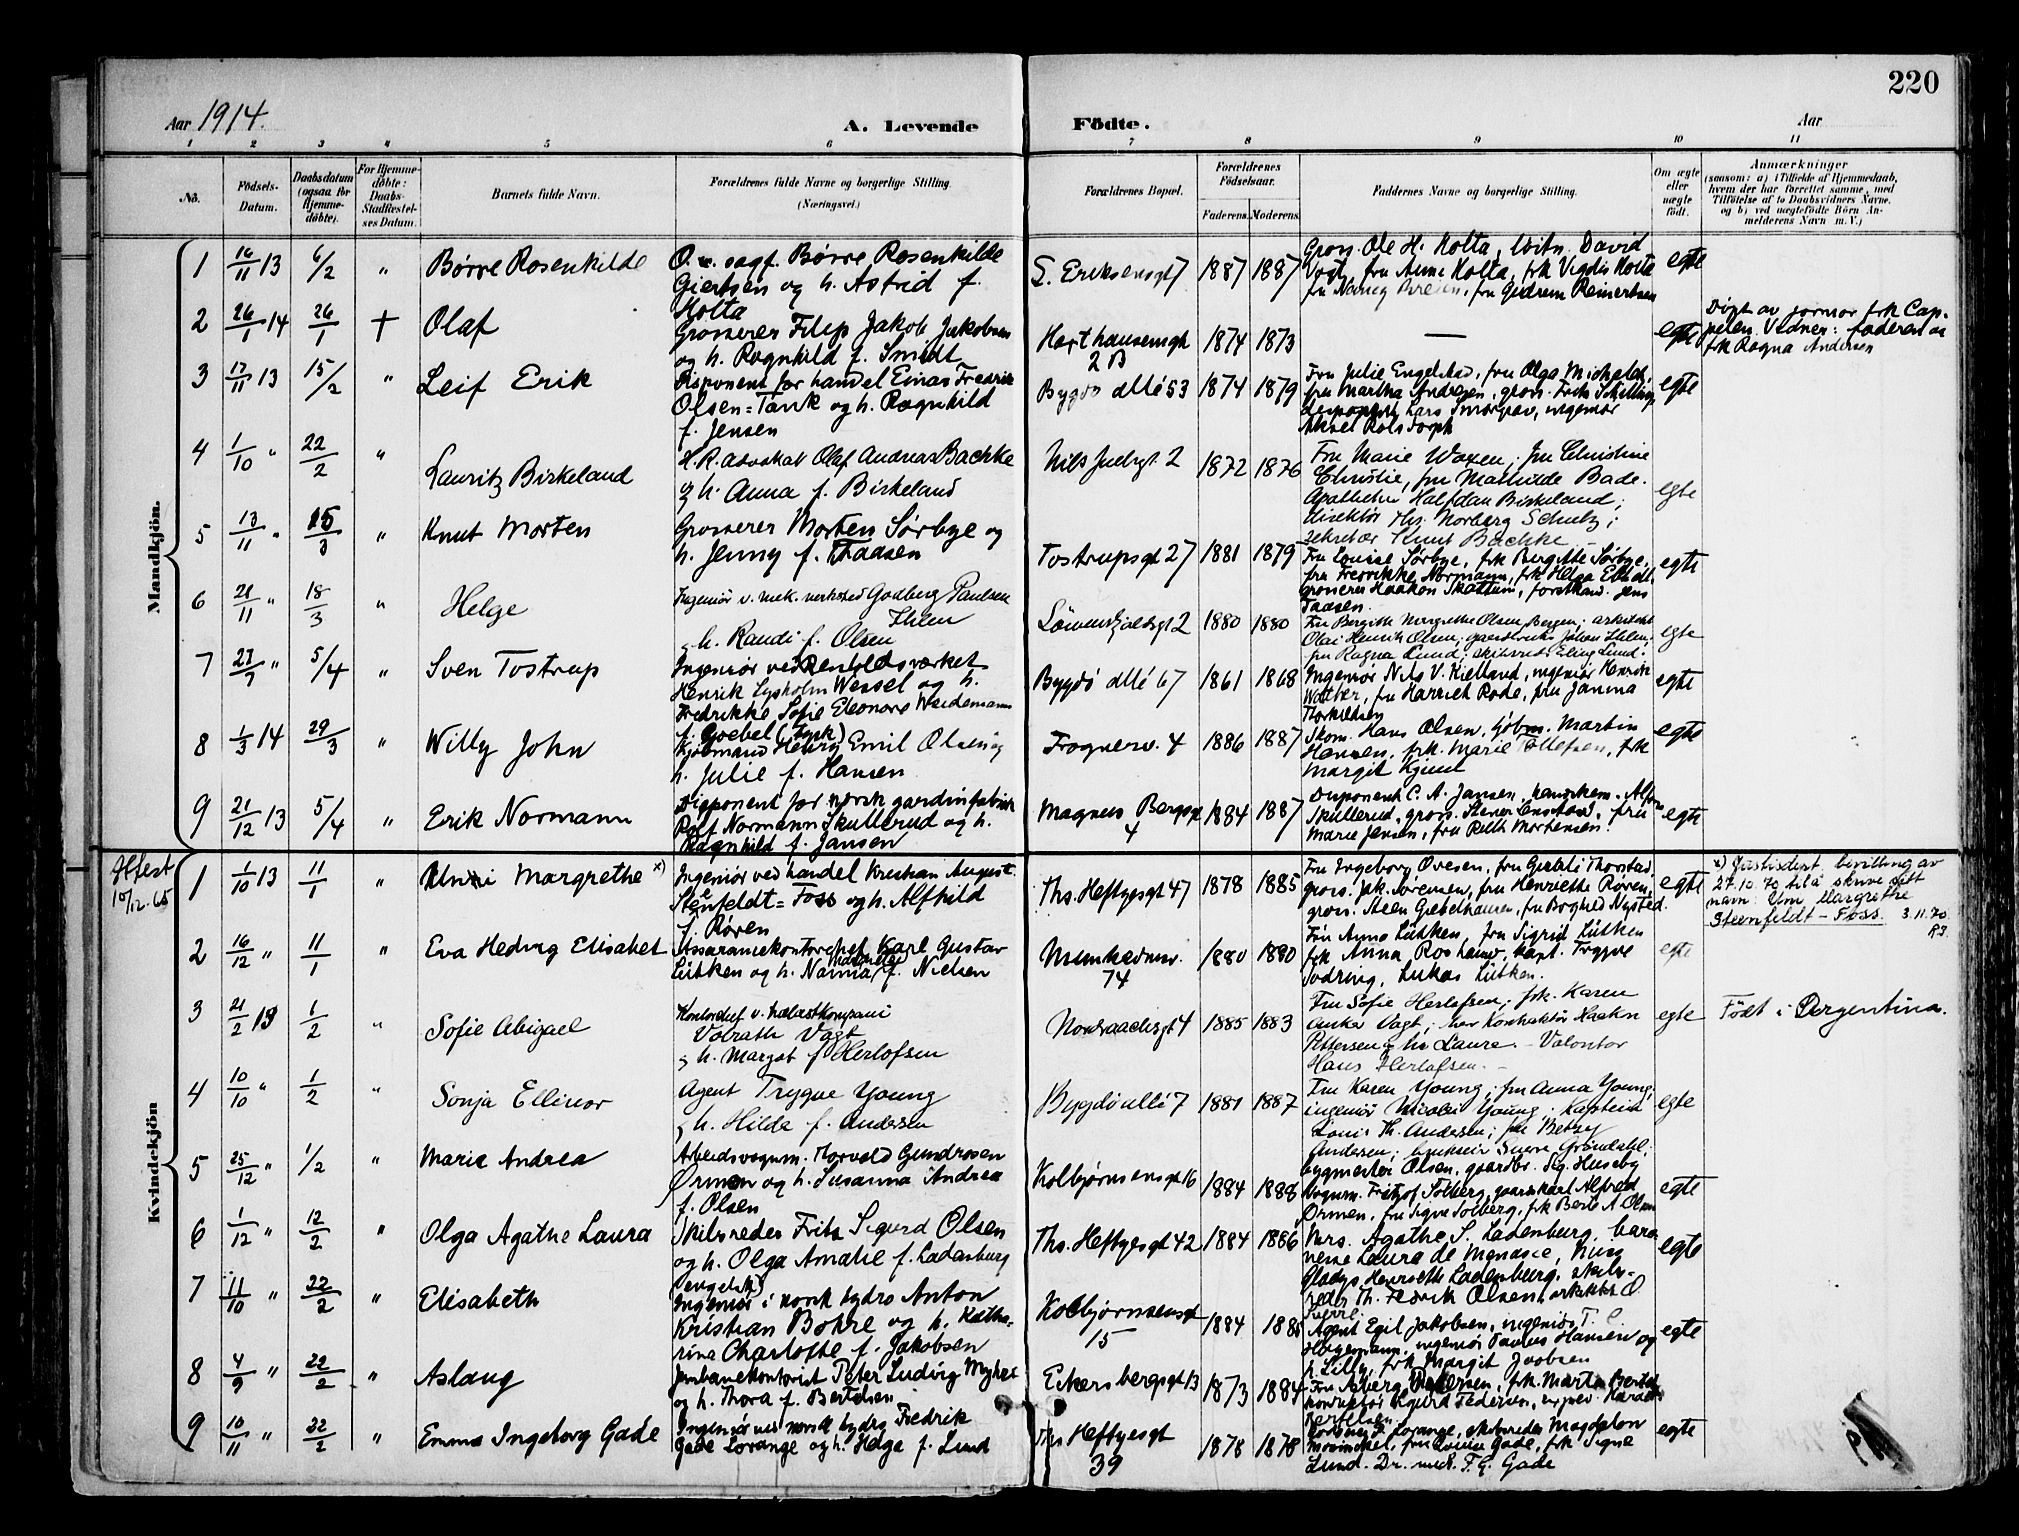 220
Aar 1914. A. Levende Födte. Aar
1 2 3 4 5 6 7 8 9 10 11
No.
Födsels-Datum.
Daabsdatum (ogsaa for Hjemme-döbte).
For Hjemme-döbte: Daabs-Stadfæstel-ses Datum.
Barnets fulde Navn.
Forældrenes fulde Navne og borgerlige Stilling.
(Næringsvei.)
Forældrenes Bopæl.
Forældrenes Födselsaar.
Faderens. Moderens.
Faddernes Navne og borgerlige Stilling.
Om ægte eller uægte födt.
Anmærkninger
(saasom: a) i Tilfælde af Hjemmedaab,
hvem der har forrettet samme, med
Tilföielse af to Daabsvidners Navne,
og b) ved uægtefödte Börn An-
melderens Navn m. V.)
Mandkjön.
1 16/11 13 6/2 " Børre Rosenkilde
O.r. sagf. Børre Rosenkilde
Giertsen og h. Astrid f.
Holta
S. Eriksensgt 7 1887 1887
Gross. Ole H. Holta, David
Vogt, fru Anne Holta, frk Vigdis Holta
fru Gudrun Reinertsen
egte
2 26/1 14 26/1 + Olaf
Grosserer Filip Jakob Jakobsen
og h. Ragnhild f. Smidt
Harthausensgt
2 B
1874 1873 — egte
Døpt av jormor frk Cap-
pelen. Vidner: faderen og
frk Ragna Andersen
3 17/11 13 15/2 " Leif Erik
Disponent for handel Einar Fredrik
Olsen=Tank og h. Ragnhild
f. Jensen
Bygdø allé 53 1874 1879
Fru Julie Engelstad, fru Olga Michelet,
fru Martha Andresen, gross. Frits Schilling
disponent Lars ingeniør
Aksel Rolsdorph
egte
4 1/10 " 22/2 " Lauritz Birkeland
H.R. advokat Olaf Andreas Bachke
og h. Anna f. Birkeland
Nils Juelsgt. 2 1872 1876
Fru Marie Waxen; fru Christine
Christie, fru Mathilde Bade.
Apotheker Halfdan Birkeland;
direktør Ths. Norberg Schulz;
sekretær Knut Bachke
egte
5 13/11 " 15/3 " Knut Morten
Grosserer Morten Sørbye og
h. Jenny f. Faasen
Tostrupsgt 27 1881 1879
Fru Louise Sørbye, frk Bergitte Sørbye,
fru Fredrikke Normann, frk Helga
grosserer Haakon Skattum, Jens
Taasen.
egte
6 21/11 " 18/3 " Helge
Ingeniør v. mek. verksted Godberg Paulsen
Ihlen
og h. Randi f. Olsen
Løvenskjoldsgt 2 1880 1880
Fru Bergith Margrethe Olsen, Bergen; arkitekt
Olai Henrik Olsen; gaardbruker Johan Ihlen;
fru Ragna Lund; skibsred. Lund.
egte
7 27/7 " 5/4 " Sven Tostrup
Ingeniør ved Renholdsverket
Henrik Lysholm Wessel og h.
Fredrikke Sofie Eleonore Weidemann
f. Goebel (tysk)
Bygdø allé 67 1861 1868
Ingeniør Nils V. Kielland, ingeniør Henrik
fru Harriet Rode, fru Janna
Thorkildsen
egte
8 1/3 14 29/3 " Willy John
Kjøbmand Henry Emil Olsen og
h. Julie f. Hansen
Frognerv. 4 1886 1887
Skom. Hans Olsen, kjøbm. Martin
Hansen, frk. Marie Tollefsen, frk
Margit
egte
9 21/12 13 5/4 " Erik Normann
Disponent for norsk gardinfabrik
Rolf Normann Skullerud og h.
Ragnhild f. Jansen
Magnus Bergsgt
4
1884 1887
Disponent C. A. Jansen, Alfr.
Skullerud, gross. fru
Marie Jensen, fru Ruth Mortensen.
egte
Kvindekjön
Attest
10/12. 65
1 1/10 13 11/1 " Unni Margrethe x)
Ingeniør ved handel Kristian August
Stenfeldt=Foss og h. Alfhild
f. Røren
Ths. Heftyesgt 47 1878 1885
Fru Ingeborg Ovesen, fru Thorstad
gross. Jak. Sørensen, fru Henriette Røren,
gross. Steen Giebelhausen, fru Nysted.
egte
x) Justisdept. bevilling av
27.10.70 til å skrive sitt
navn: Unni Margrethe
Steenfeldt-Foss. 3.11.70
RJ.
2 16/12 " 11/1 " Eva Hedvig Elisabet
Assurancekontorchef Karl Gustav
Lütken og h. Nanna f. Nielsen
Munkedamsv.
74
1880 1880
Fru Anna Lütken, fru Sigrid Lütken
frk Anna Roshauw, kapt. Trygve
Sodring, Lukas Lütken.
egte
3 21/2 13 1/2 " Sofie Abigael
Kontorchef v.
Volrath Vogt
og h. Margot f. Herlofsen
Nordraachsgt 4 1885 1883
Fru Sofie Herlofsen; frk. Karen
Anker Vogt; herr Kontraktør Haakon
Pettersen og Laura. - Volontør
Hans Herlofsen. -
egte
Født i Argentina.
4 10/10 " 1/2 " Sonja Ellinor
Agent Trygve Young
og h. Hilda f. Andersen
Bygdø allé 7 1881 1887
Fru Karen Young; fru Anna Young;
ingeniør Nicolai Young; Kaptein
Louis Th. Andersen; fru Betsy
Andersen; Grøndahl;
egte
5 25/12 " 1/2 " Marie Andrea
Arbeidsvognm. Torvald Gundrosen
Ormen og h. Susanna Andrea
f. Olsen
Kolbjørnsensgt 16 1884 1888
bygmester Olsen, gaardbr. Sig. Huseby
vognm. Fritjof Solberg, gaardskarl Alfred
Ormen, fru Signe Solberg, frk Berte A Olsen
egte
6 1/12 " 12/2 " Olga Agathe Laura
Skibsreder Fritz Sigurd Olsen
og h. Olga Amalie f. Ladenburg
(engelsk)
Ths. Heftyesgt 42 1884 1886
Mrs. Agathe S. Ladenburg, baro-
nesse Laura de Menasce, miss
Gladys Henriette Ladenburg, skibs-
reder Th. Fredrik Olsen, arkitekt O.
Sverre
egte
7 11/10 " 22/2 " Elisabeth
Ingeniør i norsk hydro Anton
Kristian Bohre og h. Katha-
rina Charlotte f. Jakobsen
Kolbjørnsensgt
15
1884 1885
Agent Egil Jakobsen, ingeniør T. C.
Hagemann, ingeniør Paulus Hansen og
h. Lilly, frk Margit Jacobsen
egte
8 4/9 " 22/2 " Aslaug
Jernbanekontorist Peter Ludvig Myhre
og h. Thora f. Bertelsen
Eckersbergsgt 13 1873 1884
Fru Pedersen, frk. Marta Bertelsen
konduktør Sigurd Pedersen, Harald
Bertelsen
9 10/11 " 22/2 " Emma Ingeborg Gade
Ingeniør ved norsk hydro Fredrik
Gade Lorange og h. Helga f. Lund
Ths Heftyesgt
39
1878 1878
Lorange, skibsreder Magdalon
Mowinckel, fru Louise Gade, frk Signe
Lund. Dr. med. F. G. Gade
egte